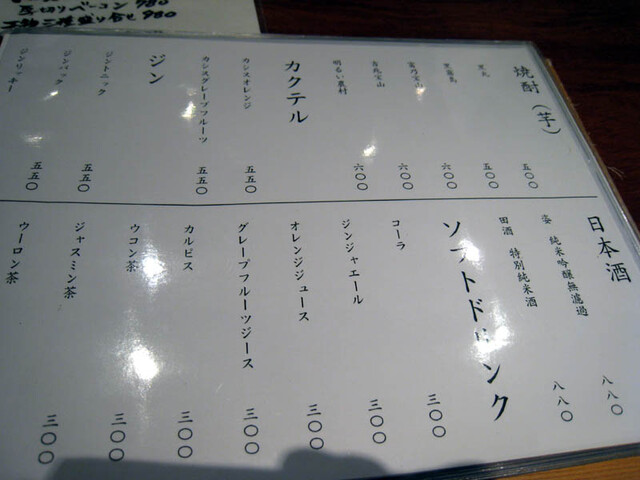 厚切りベーコン 980
三種盛り合せ 980
焼酎（芋）
黒丸 五〇〇
黒霧島 五〇〇
富乃宝山 六〇〇
吉兆宝山 六〇〇
明るい農村 六〇〇
カクテル
カシスオレンジ 五五〇
カシスグレープフルーツ 五五〇
ジン
ジントニック 五五〇
ジンバック 五五〇
ジンリッキー
日本酒
姿 純米吟醸無濾過 八八〇
田酒 特別純米酒 八八〇
ソフトドリンク
コーラ 三〇〇
ジンジャエール 三〇〇
オレンジジュース 三〇〇
グレープフルーツジース 三〇〇
カルピス 三〇〇
ウコン茶 三〇〇
ジャスミン茶 三〇〇
ウーロン茶